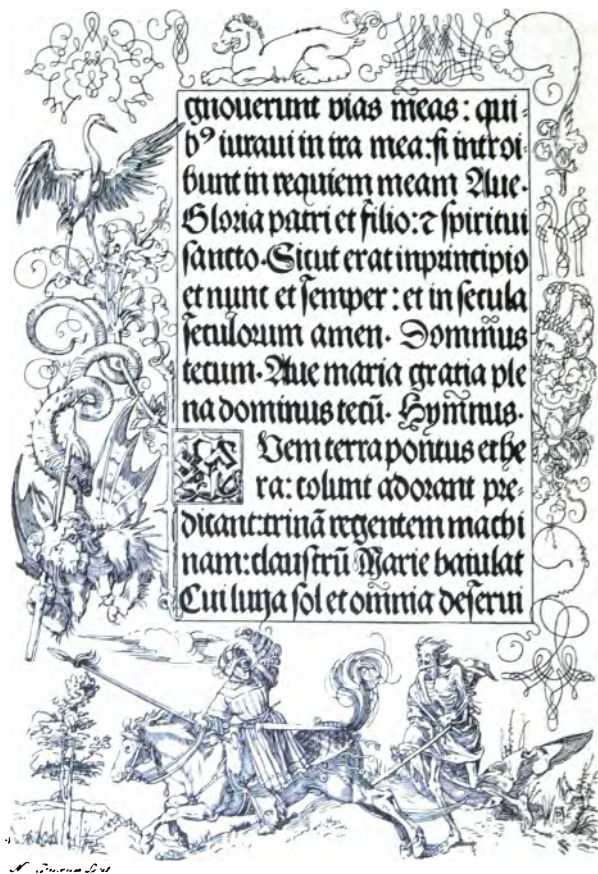 gnouerunt vias meas: qui⸗
bꝰ iuraui in ira mea: si introi⸗
bunt in requiem meam Aue·
Gloria patri et filio: ⁊ spiritui
sancto· Sicut erat inprincipio
et nunc et semper: et in secula
seculorum amen· Dominus
tecum· Aue maria gratia ple
na dominus tecū· Hymnus·
Vem terra pontus ethe
ra: colunt adorant pre⸗
dicant: trinā regentem machi
nam: claustrū Marie baiulat
Cui luna sol et omnia deserui